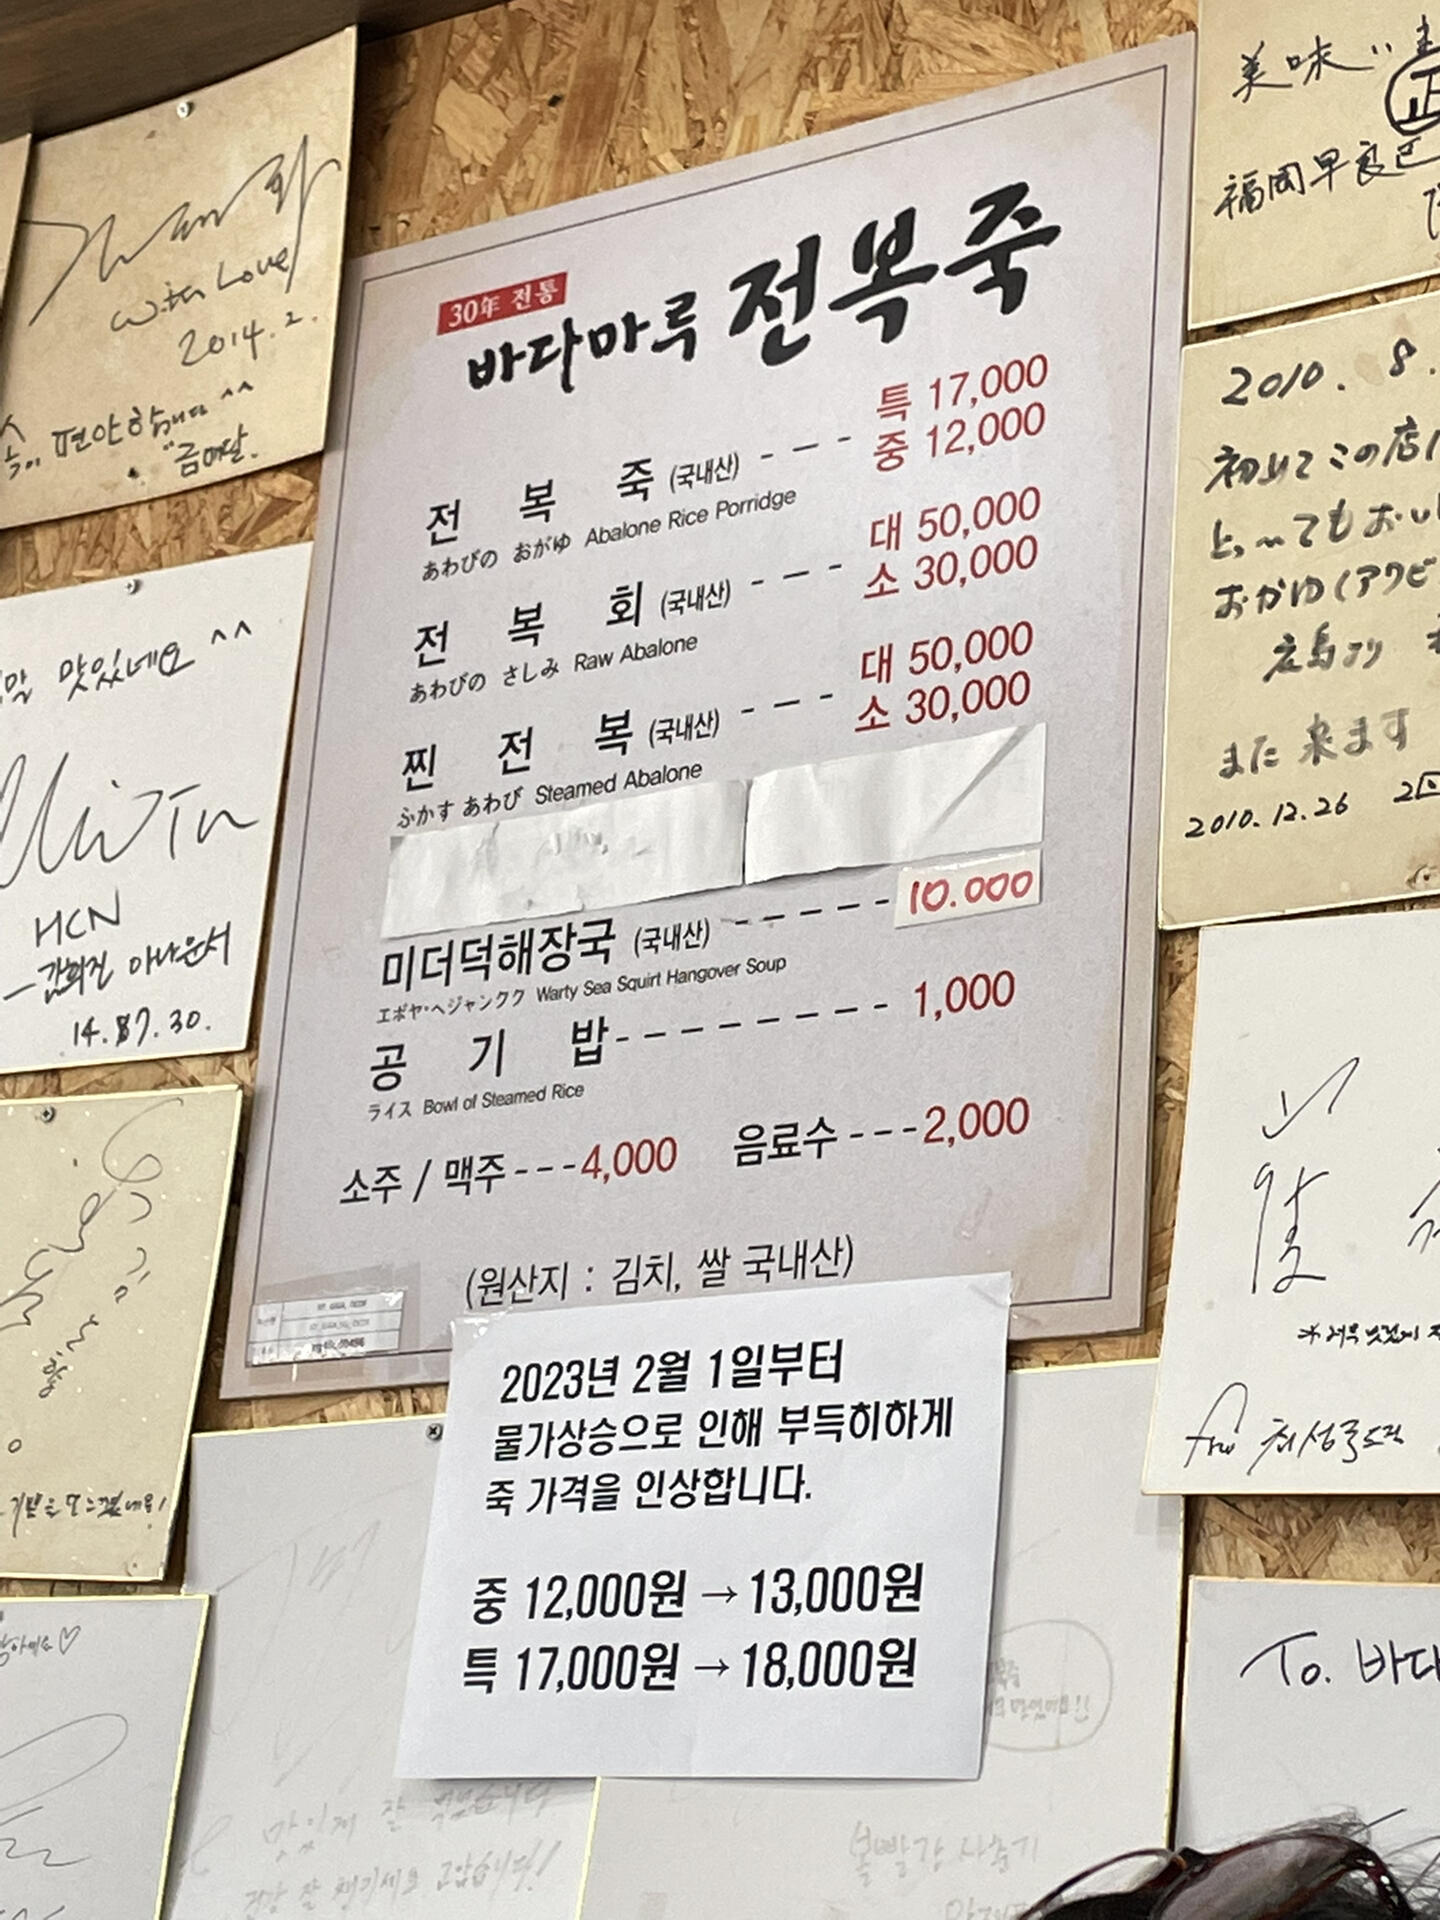 30年 전통
바다마루 전복죽
특 17,000
중 12,000
전 복 죽 (국내산)
あわびの おがゆ Abalone Rice Porridge
대 50,000
소 30,000
전 복 회 (국내산)
あわびの さしみ Raw Abalone
대 50,000
소 30,000
찐 전 복 (국내산)
ふかす あわび Steamed Abalone
미더덕해장국 (국내산) ------ 10.000
エボヤ・ヘジャンクク Warty Sea Squirt Hangover Soup
공 기 밥--------- 1,000
ライス Bowl of Steamed Rice
소주 / 맥주---4,000 음료수---2,000
(원산지 : 김치, 쌀 국내산)
2023년 2월 1일부터
물가상승으로 인해 부득히하게
죽 가격을 인상합니다.
중 12,000원 → 13,000원
특 17,000원 → 18,000원
with Love
2014. 2.
편안합니다 ^^
맛있네요 ^^
HCN
아나운서
14. 07. 30.
美味
正
福岡早良
2010. 8.
初めてこの店に
と、〜てもおい
おかゆ(アワビ
広島より
また来ます
2010. 12. 26 2回
To. 바다
맛있게 잘 먹었습니다
건강 잘 챙기세요 고맙습니다!
볼빨간사춘기